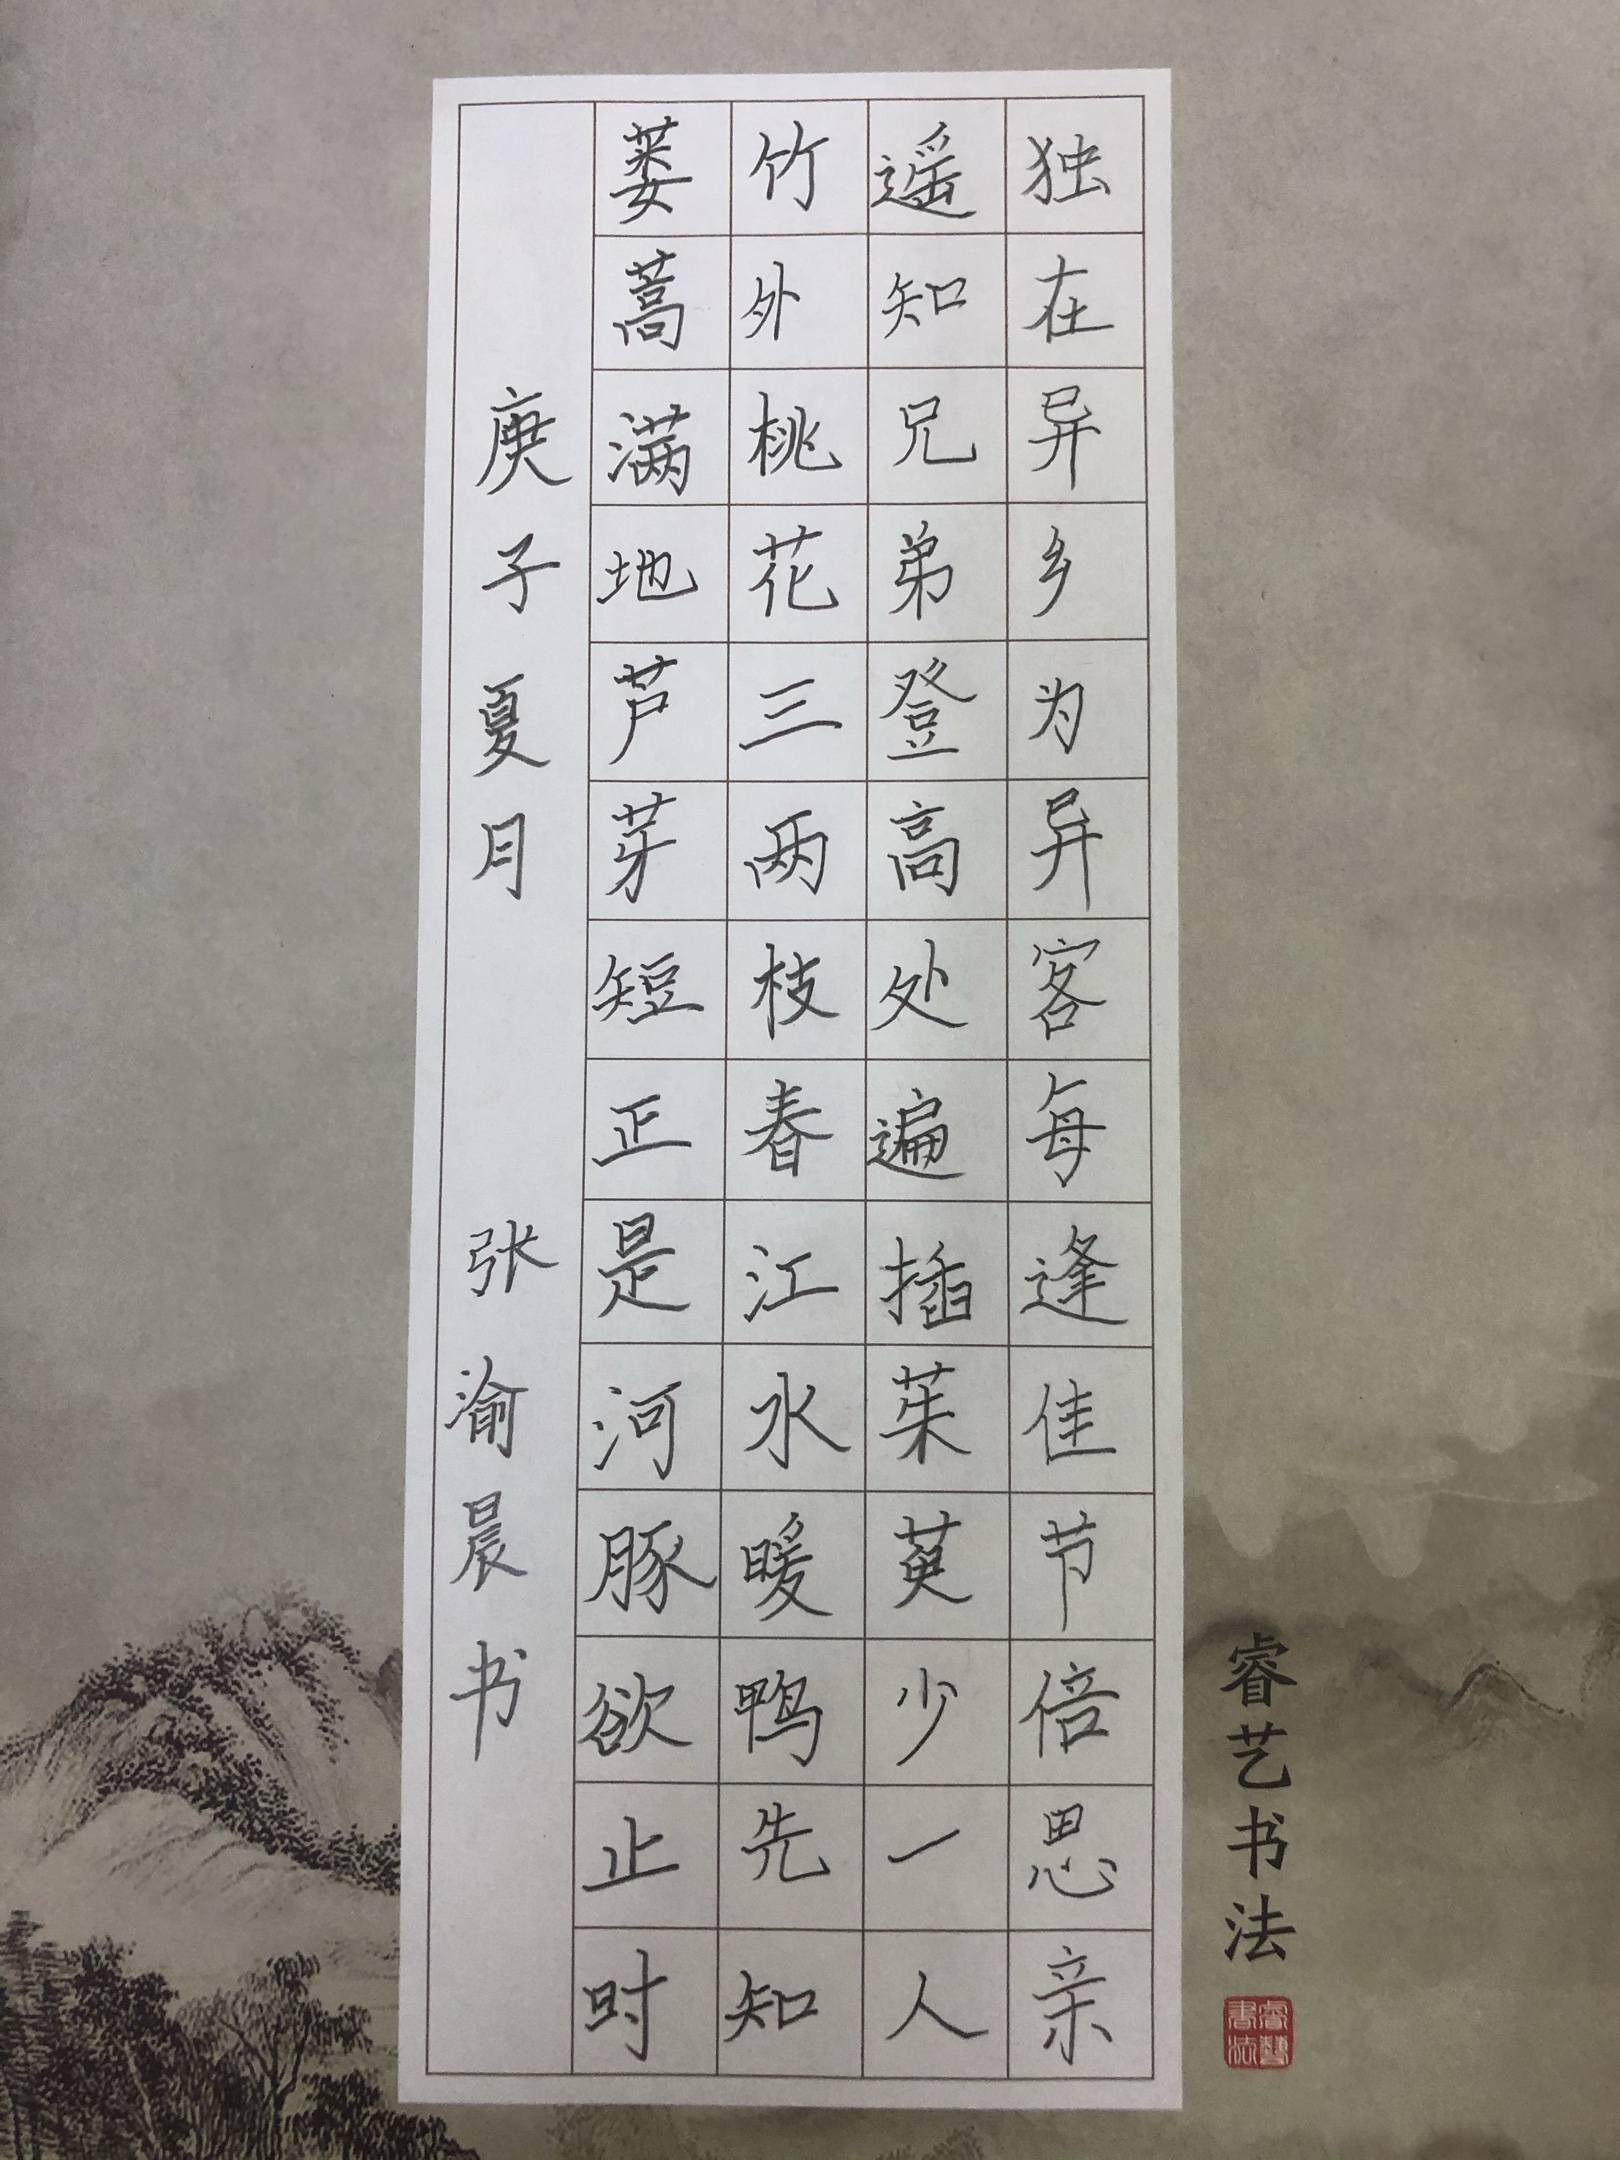 独在异乡为异客每逢佳节倍思亲
遥知兄弟登高处遍插茱萸少一人
竹外桃花三两枝春江水暖鸭先知
蒌蒿满地芦芽短正是河豚欲止时
庚子夏月 张渝晨书
睿艺书法
睿艺书法